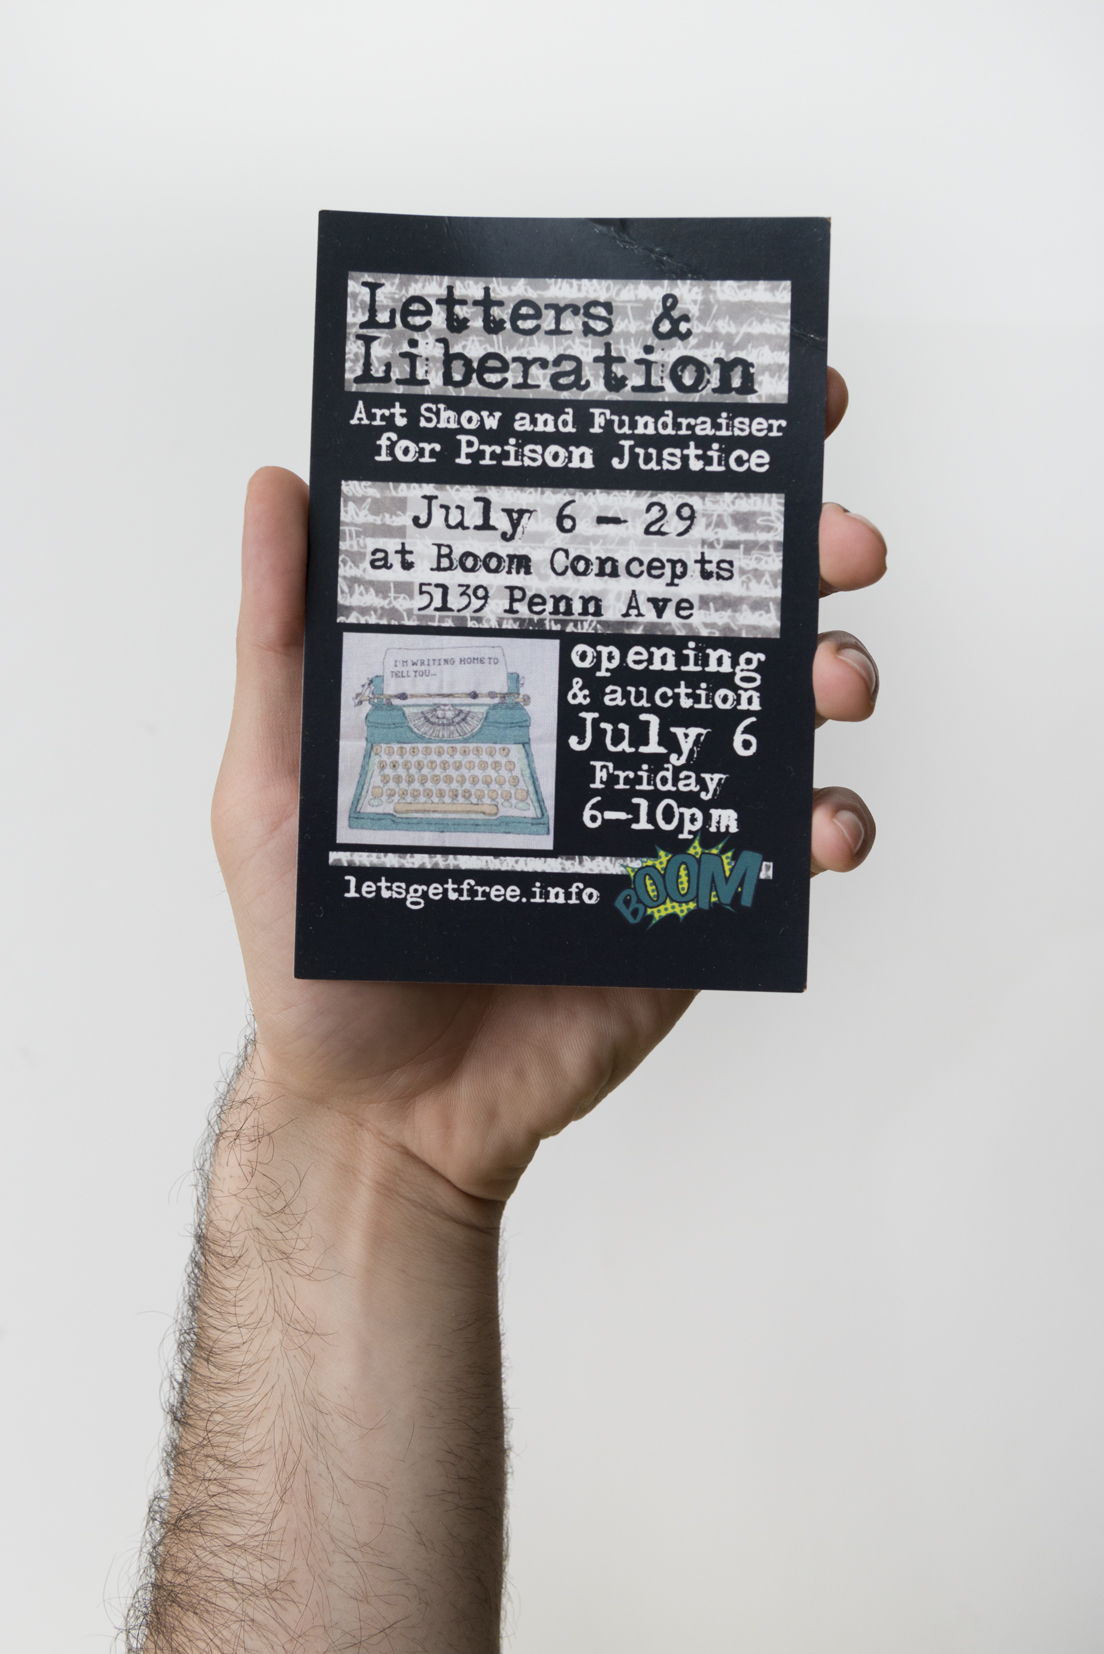 Letters &
Liberation
Art Show and Fundraiser
for Prison Justice
July 6 – 29
at Boom Concepts
5139 Penn Ave
I'M WRITING HOME TO
TELL YOU...
opening
& auction
July 6
Friday
6–10pm
letsgetfree.info
BOOM